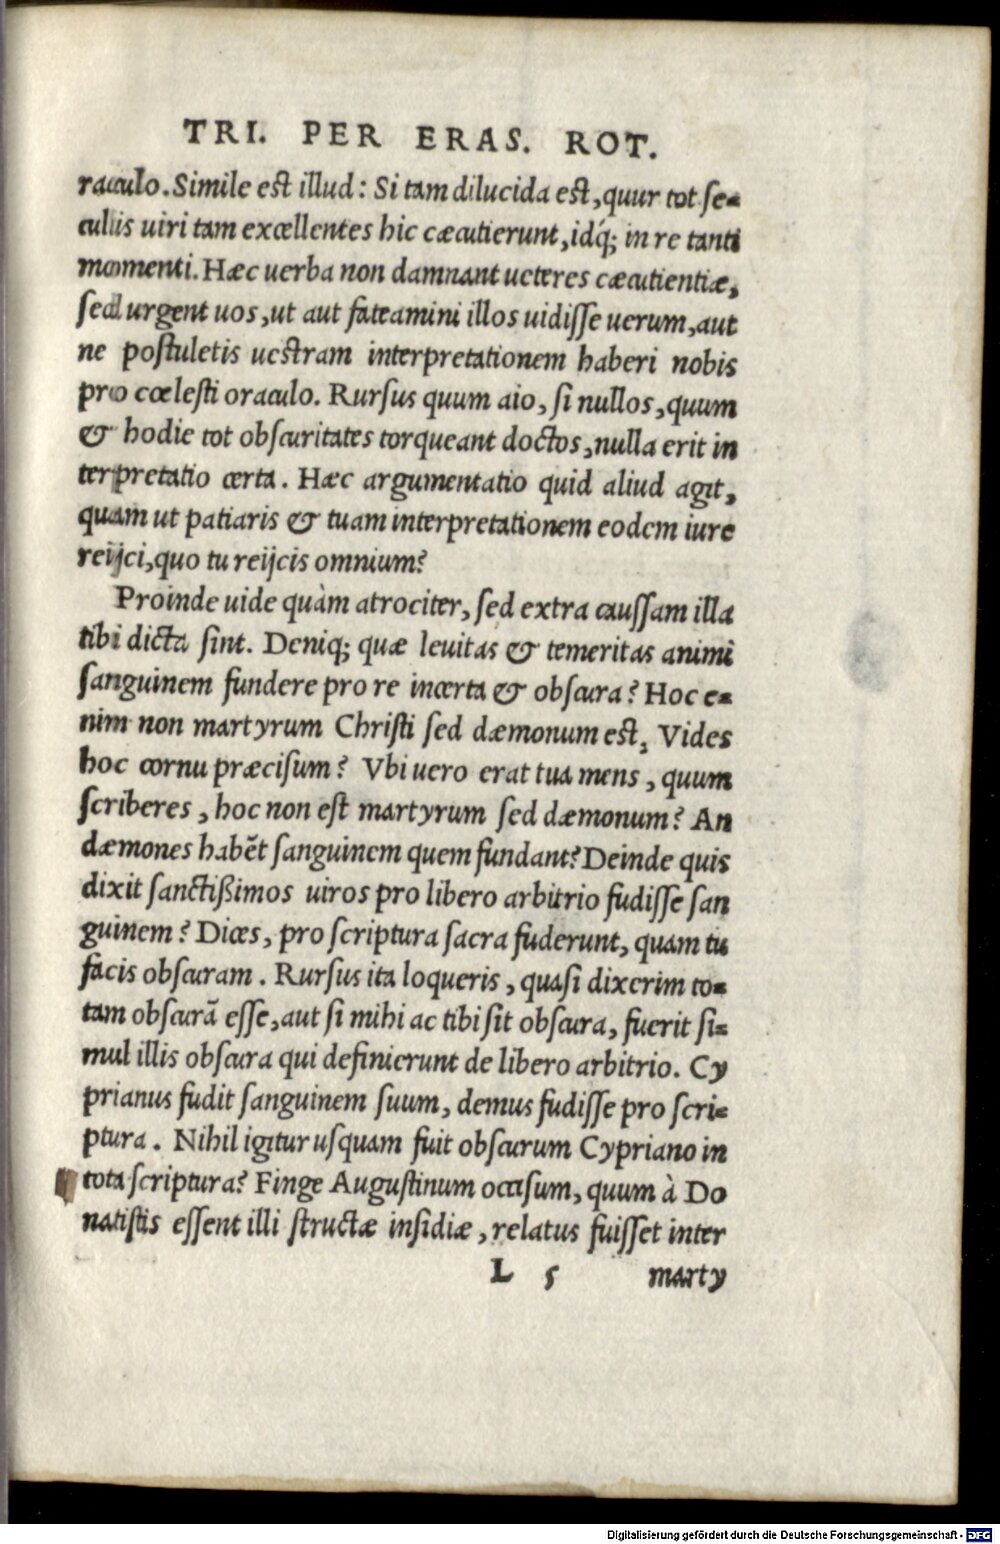 TRI. PER ERAS. ROT.
raculo. Simile est illud: Si tam dilucida est, quur tot se=
culis uiri tam excellentes hic cæcutierunt, idq́; in re tanti
momenti. Hæc uerba non damnant ueteres cæcutientiæ,
sed urgent uos, ut aut fateamini illos uidisse uerum, aut
ne postuletis uestram interpretationem haberi nobis
pro cœlesti oraculo. Rursus quum aio, si nullos, quum
& hodie tot obscuritates torqueant doctos, nulla erit in
terpretatio certa. Hæc argumentatio quid aliud agit,
quam ut patiaris & tuam interpretationem eodem iure
reijci, quo tu reijcis omnium?
Proinde uide quàm atrociter, sed extra caussam illa
tibi dicta sint. Deniq; quæ leuitas & temeritas animi
sanguinem fundere pro re incerta & obscura? Hoc e=
nim non martyrum Christi sed dæmonum est. Vides
hoc cornu præcisum? Vbi uero erat tua mens, quum
scriberes, hoc non est martyrum sed dæmonum? An
dæmones habẽt sanguinem quem fundant? Deinde quis
dixit sanctißimos uiros pro libero arbitrio fudisse san
guinem? Dices, pro scriptura sacra fuderunt, quam tu
facis obscuram. Rursus ita loqueris, quasi dixerim to=
tam obscurã esse, aut si mihi ac tibi sit obscura, fuerit si=
mul illis obscura qui definierunt de libero arbitrio. Cy
prianus fudit sanguinem suum, demus fudisse pro scri=
ptura. Nihil igitur usquam fuit obscurum Cypriano in
tota scriptura? Finge Augustinum occisum, quum à Do
natistis essent illi structæ insidiæ, relatus fuisset inter
L 5 marty
Digitalisierung gefördert durch die Deutsche Forschungsgemeinschaft - DFG